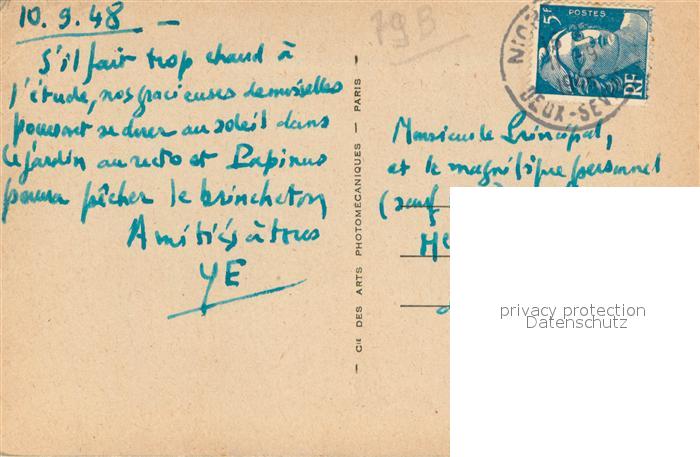 10.9.48 —
S'il fait trop chaud à
l'étude, nos gracieuses demoiselles
pourront se dorer au soleil dans
le jardin au recto et Lapinus
pourra pêcher le brincheton
Amitiés à tous
YE
79 B
— Cie DES ARTS PHOTOMÉCANIQUES — PARIS —
NIOR
DEUX-SEV
5F
POSTES
RF
Monsieur le Principal,
et le magnifique personnel
(sauf
Me
privacy protection
Datenschutz